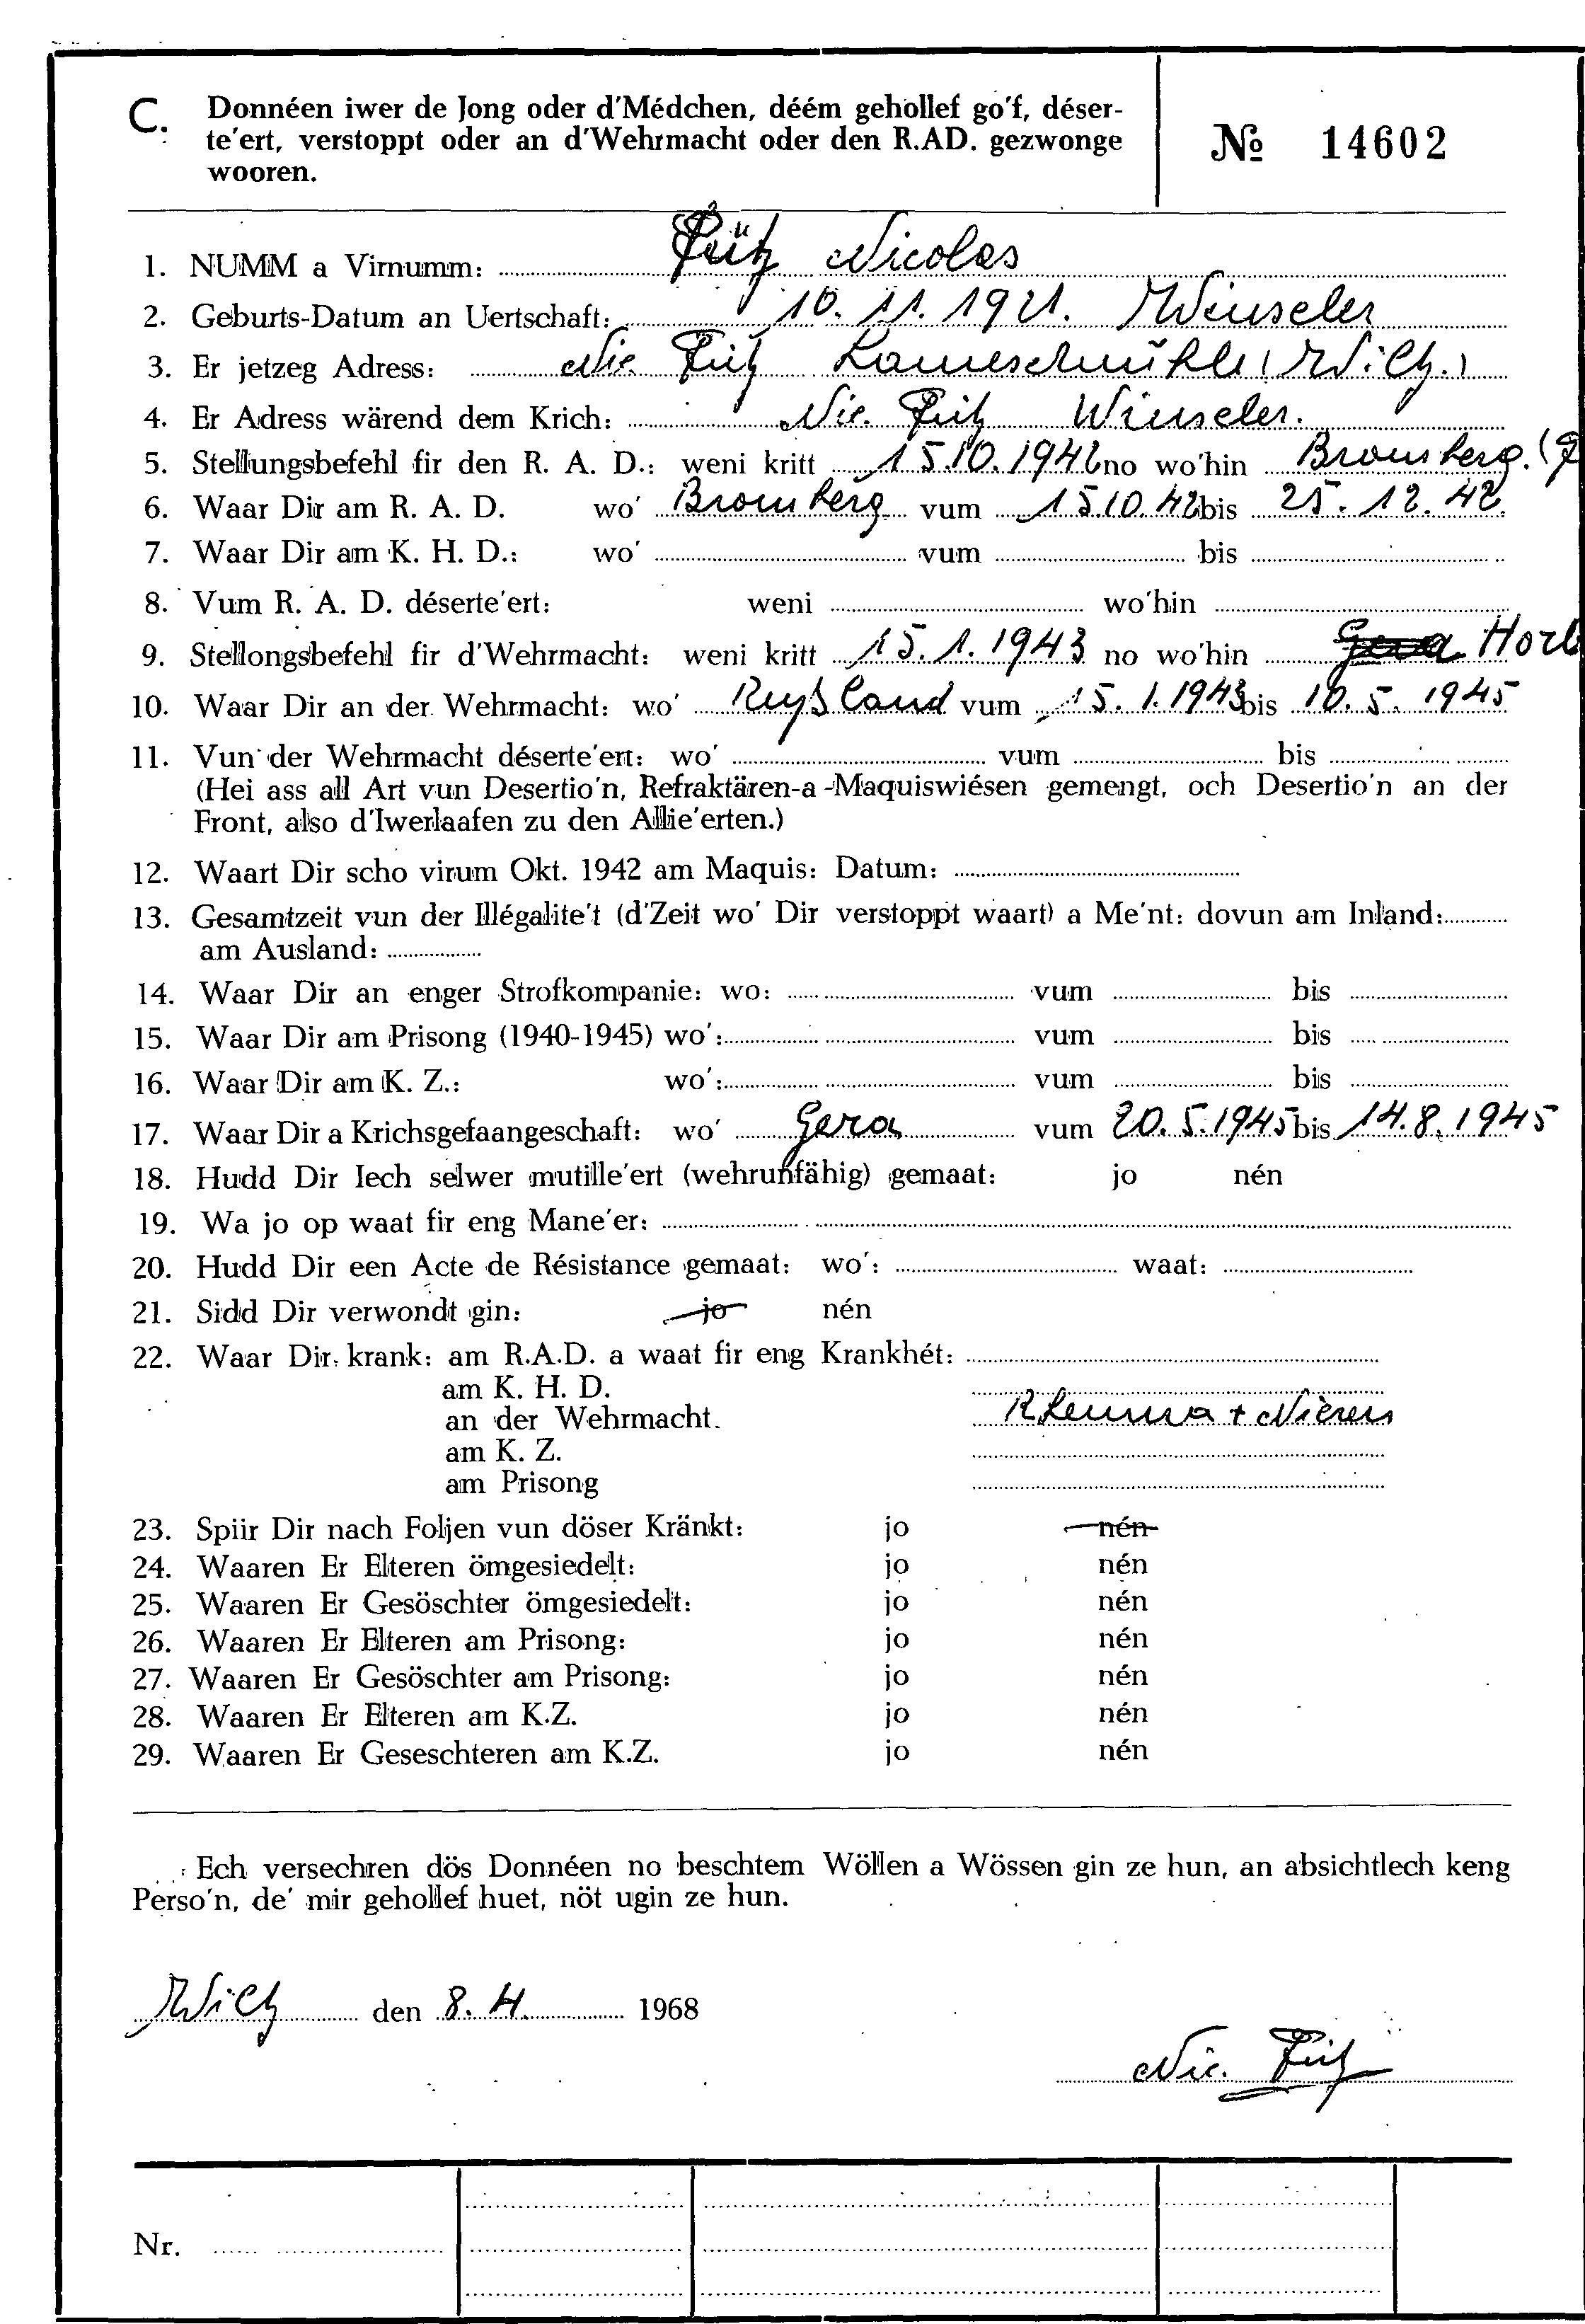 C. Donnéen iwer de Jong oder d'Médchen, déém gehollef go'f, déser-
te'ert, verstoppt oder an d'Wehrmacht oder den R.AD. gezwonge
wooren.
№ 14602
1. NUMM a Virnumm: Pütz Nicolas
2. Geburts-Datum an Uertschaft: 10. 11. 1921. Winseler
3. Er jetzeg Adress: Nic. Pütz (Wiltz.)
4. Er Adress wärend dem Krich: Nic. Pütz Winseler.
5. Stellungsbefehl fir den R. A. D.: weni kritt 15.10.1942 no wo'hin Bromberg.
6. Waar Dir am R. A. D. wo' Bromberg vum 15.10.42 bis 25. 12. 42.
7. Waar Dir am K. H. D.: wo' vum bis
8. Vum R. A. D. déserte'ert: weni wo'hin
9. Stellongsbefehl fir d'Wehrmacht: weni kritt 15. 1. 1943 no wo'hin Gera Horb
10. Waar Dir an der Wehrmacht: wo' Rußland vum 15. 1. 1943 bis 10. 5. 1945
11. Vun der Wehrmacht déserte'ert: wo' vum bis
(Hei ass all Art vun Desertio'n, Refraktären-a-Maquiswiésen gemengt, och Desertio'n an der
Front, also d'Iwerlaafen zu den Allie'erten.)
12. Waart Dir scho virum Okt. 1942 am Maquis: Datum:
13. Gesamtzeit vun der Illégalite't (d'Zeit wo' Dir verstoppt waart) a Me'nt: dovun am Inland:
am Ausland:
14. Waar Dir an enger Strofkompanie: wo: vum bis
15. Waar Dir am Prisong (1940-1945) wo': vum bis
16. Waar Dir am K. Z.: wo': vum bis
17. Waar Dir a Krichsgefaangeschaft: wo' Gera vum 20. 5. 1945 bis 14. 8. 1945
18. Hudd Dir Iech selwer mutille'ert (wehrunfähig) gemaat: jo nén
19. Wa jo op waat fir eng Mane'er:
20. Hudd Dir een Acte de Résistance gemaat: wo': waat:
21. Sidd Dir verwondt gin: jo nén
22. Waar Dir krank: am R.A.D. a waat fir eng Krankhét:
am K. H. D.
an der Wehrmacht. Rheuma + Nieren
am K. Z.
am Prisong
23. Spiir Dir nach Foljen vun döser Kränkt: jo nén
24. Waaren Er Elteren ömgesiedelt: jo nén
25. Waaren Er Gesöschter ömgesiedelt: jo nén
26. Waaren Er Elteren am Prisong: jo nén
27. Waaren Er Gesöschter am Prisong: jo nén
28. Waaren Er Elteren am K.Z. jo nén
29. Waaren Er Geseschteren am K.Z. jo nén
Ech versechren dös Donnéen no beschtem Wöllen a Wössen gin ze hun, an absichtlech keng
Perso'n, de' mir gehollef huet, nöt ugin ze hun.
Wiltz den 8. 4. 1968
Nic. Pütz
Nr.